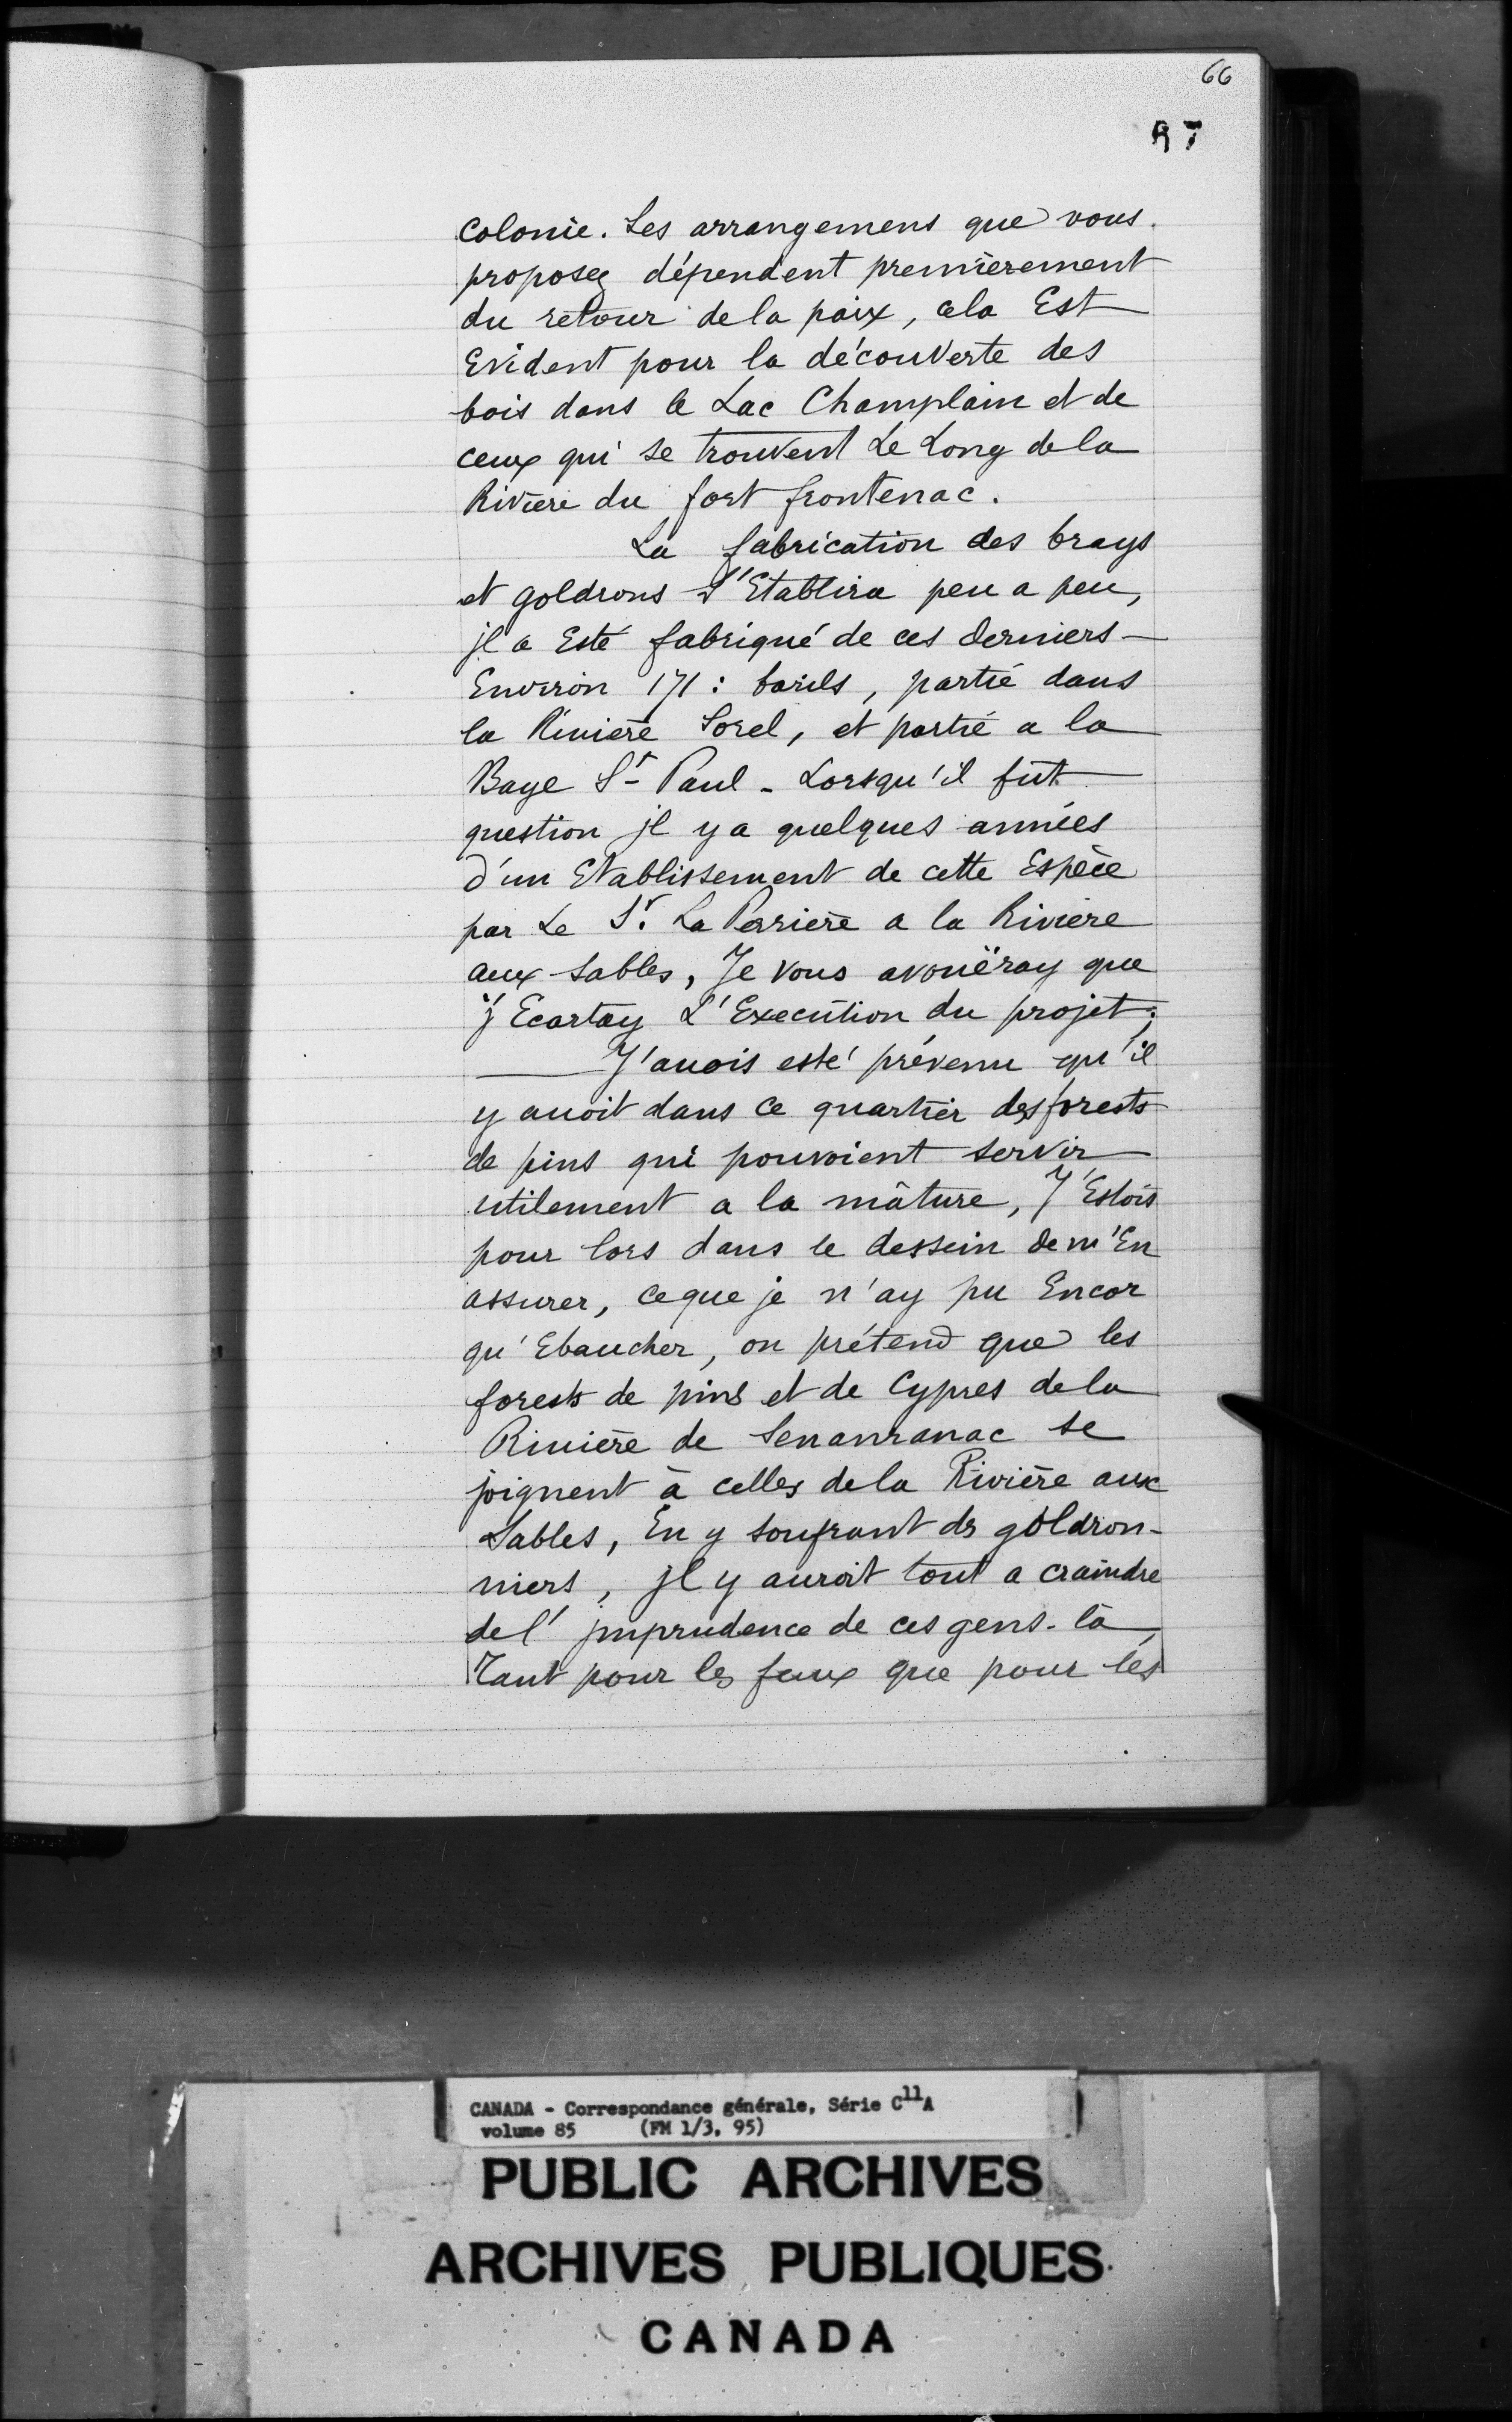 66
R7
Colonie. Les arrangemens que vous
proposez dépendent premièrement
du retour de la paix, cela Est
Evident pour la découverte des
bois dans le Lac Champlain et de
ceux qui se trouvent Le Long de la
Rivière du fort frontenac.
La fabrication des brays
et goldrons s'Etablira peu a peu,
jl a Esté fabriqué de ces derniers
Environ 171: barils, partie dans
la Rivière Sorel, et partie a la
Baye St Paul - Lorsqu'il fut
question jl y a quelques années
d'un Etablissement de cette Espèce
par Le Sr. La Perriere a la Riviere
aux Sables, Je vous avouëray que
j'Ecartay L'Execution du projet;
J'auois esté prévenu qu'il
y auoit dans ce quartier des forests
de pins qui pouvoient servir
utilement a la mâture, J'Estois
pour lors dans le dessein de m'En
assurer, ceque je n'ay pu Encor
qu'Ebaucher, on prétend que les
forests de pins et de Cypres de la
Riuière de Senanranac se
joignent à celles de la Rivière aux
Sables, En y soufrant ds goldron-
niers, jl y auroit tout a craindre
de l'jmprudence de ces gens-là,
Tant pour les feux que pour les
CANADA - Correspondance générale, Série C11A
volume 85 (FM 1/3, 95)
PUBLIC ARCHIVES
ARCHIVES PUBLIQUES
CANADA